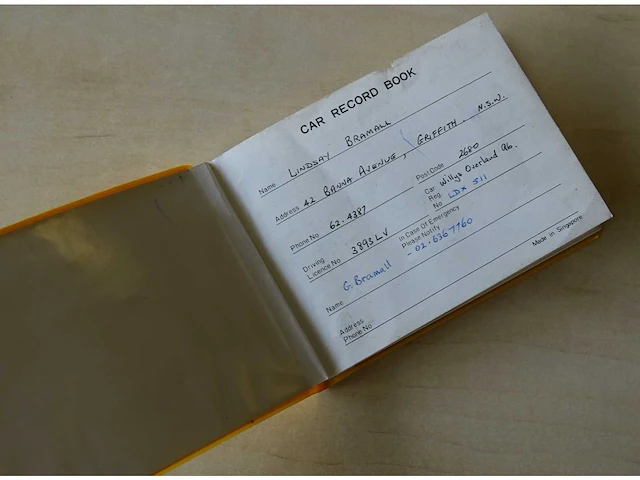 CAR RECORD BOOK
Name LINDSAY BRAMALL
Address 42 BANNA AVENUE, GRIFFITH. N.S.W.
Post Code 2680
Phone No 62.4387
Car Willys Overland
Reg. No LDX 511
Driving Licence No 3893LV
In Case Of Emergency Please Notify
- 02.6367760
Name G. Bramall
Address
Phone No
Made in Singapore